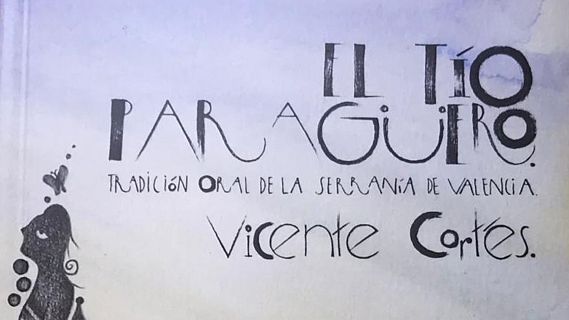 EL TÍO
PARAGÜERO.
TRADICIÓN ORAL DE LA SERRANÍA DE VALENCIA.
Vicente Cortés.